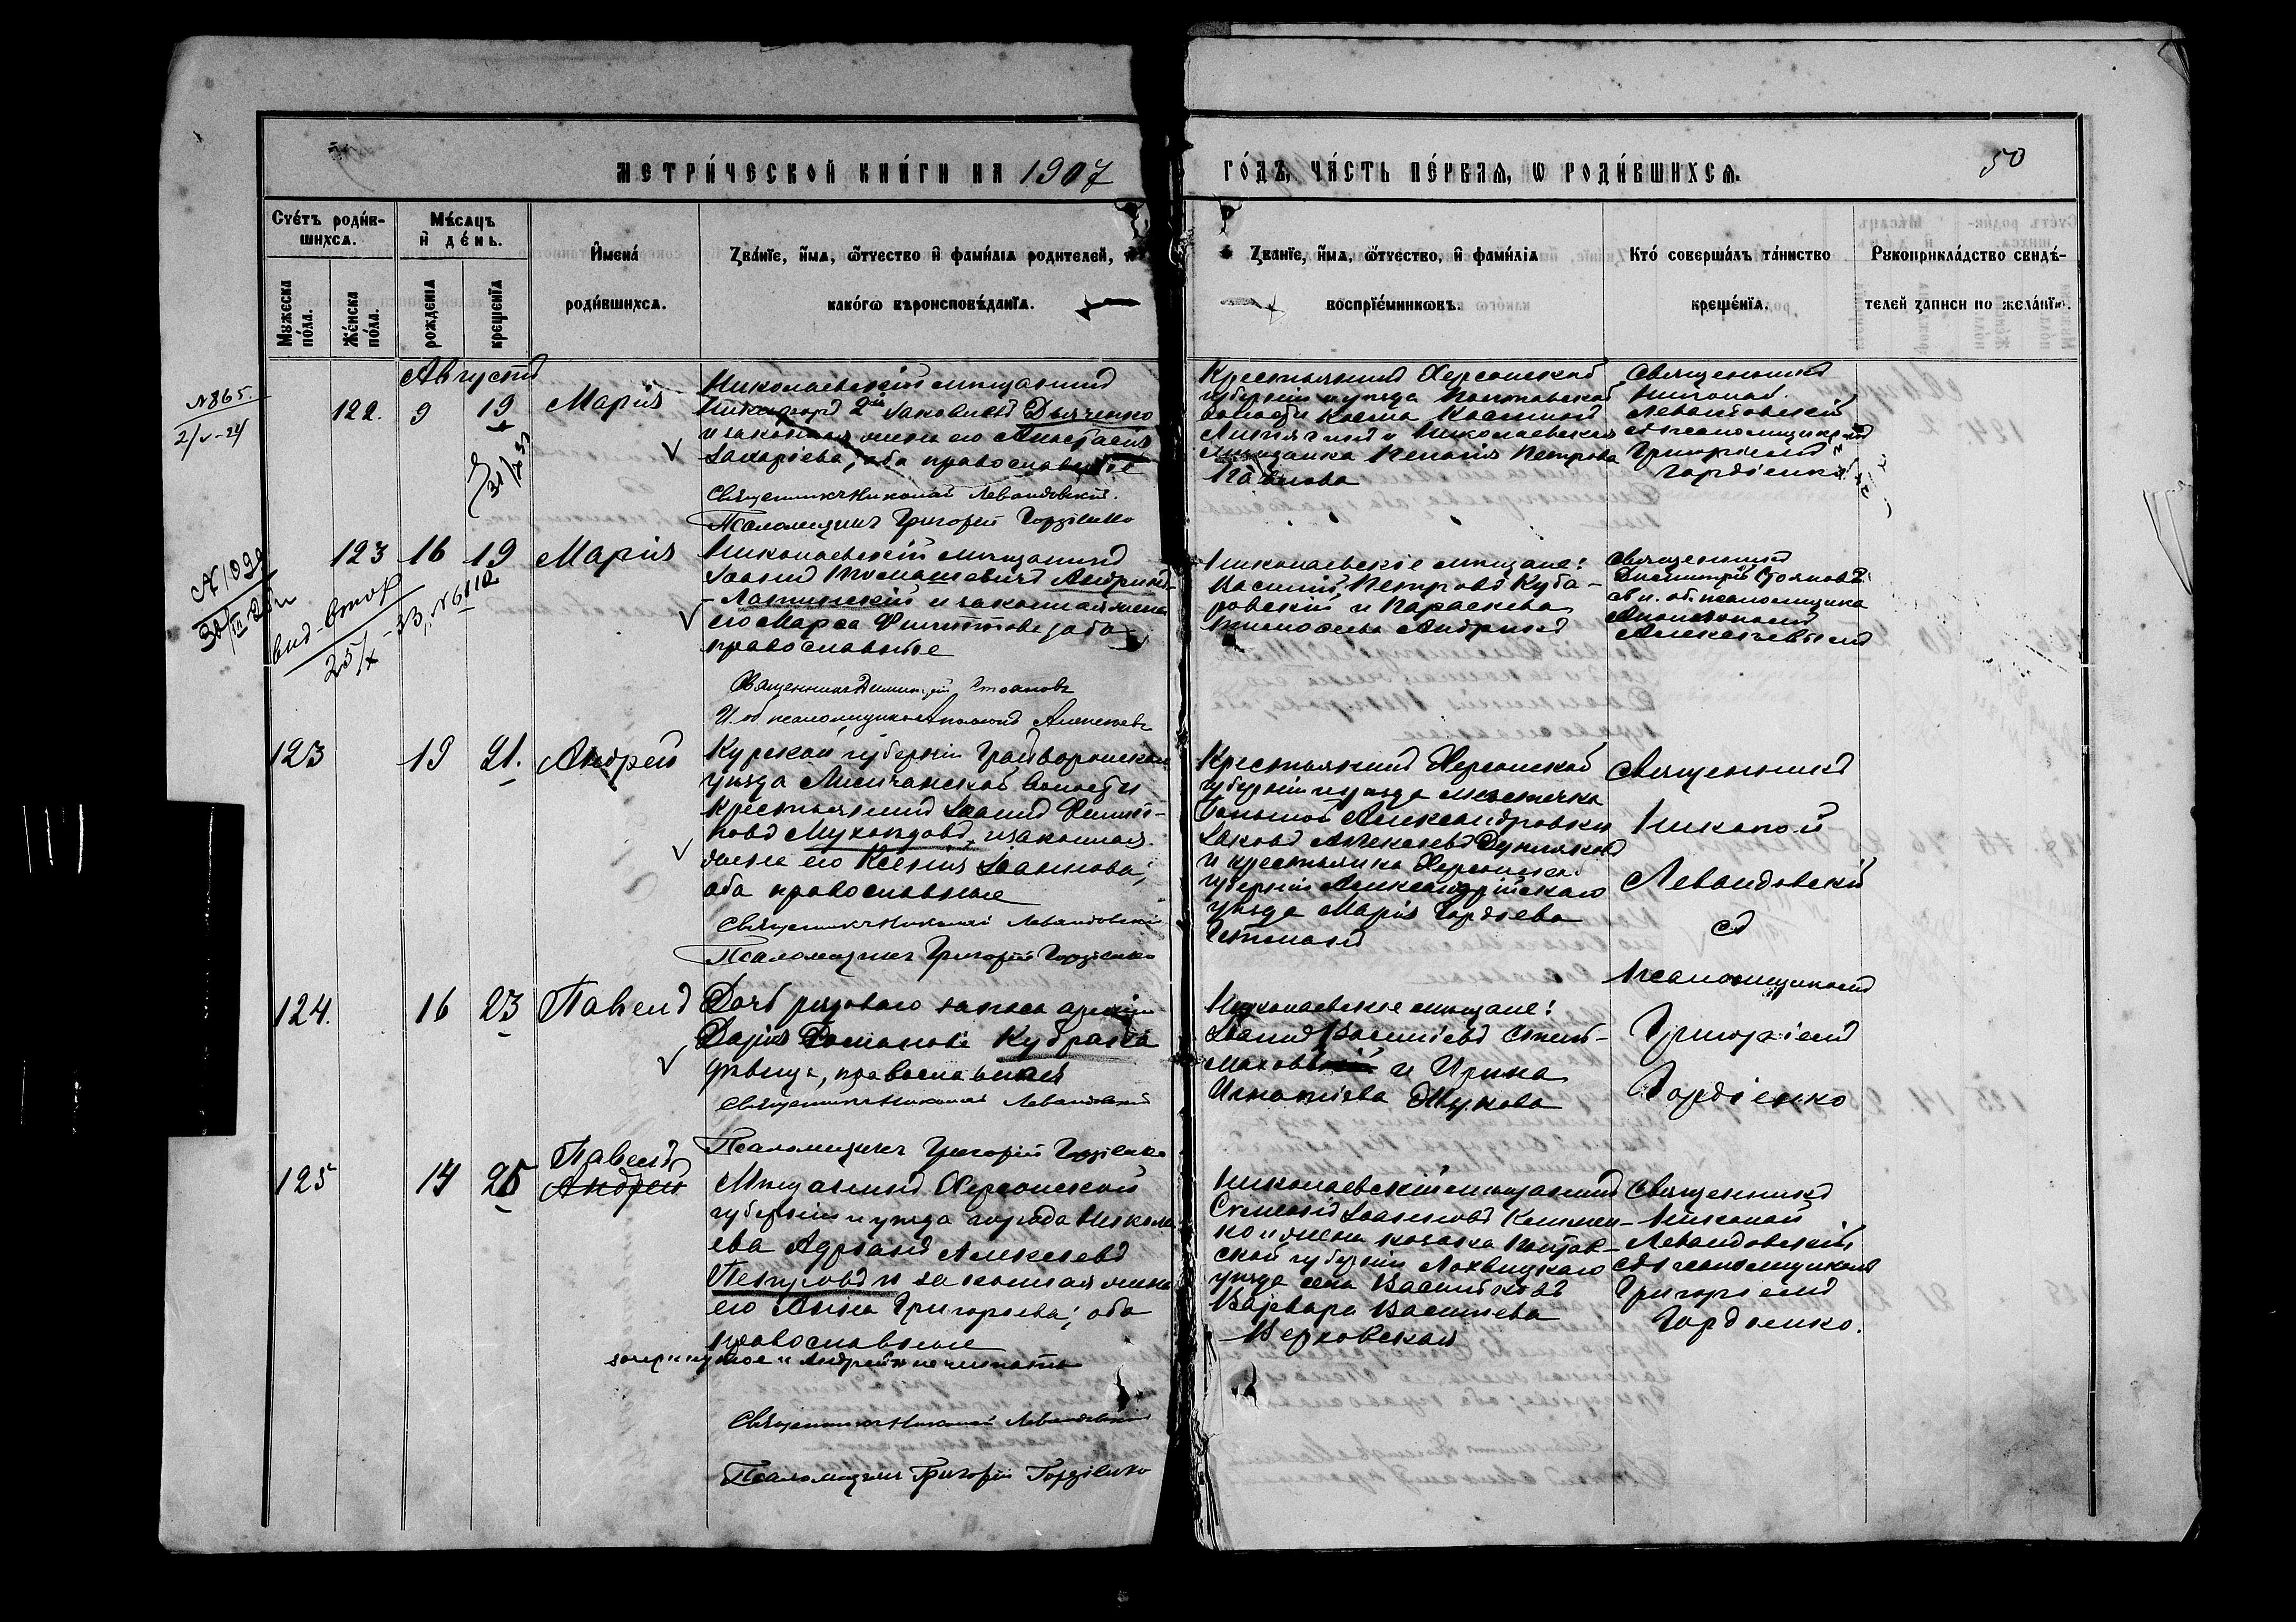 МЕТРИ́ЧЕСКОЙ КНИ́ГИ НА 1907
ГО́ДЪ, ЧА́СТЬ ПЕ́РВАЯ, Ѡ РОДИ́ВШИХСЯ.
50
Сче́тъ роди́в-
шихсѧ.
Мужеска по́ла.
Же́нска по́ла.
Мѣ́сѧцъ
и҆ де́нь.
рожденїѧ
крещенїѧ
И҆мена́
роди́вшихсѧ.
Зва́нїе, и҆́мѧ, ѻ҆́тчество и҆ фами́лїѧ родителей, и҆
како́гѡ вѣроисповѣ́данїѧ.
Зва́нїе, и҆́мѧ, ѻ҆́тчество, и҆ фами́лїѧ
воспрїе́мниковъ.
Кто́ соверша́лъ та́инство
креще́нїѧ.
Рукоприкла́дство свидѣ́-
телей записи по жела́нїю.
Августъ
№865.
2/V-24
122. 9 19 Марія
Николаевскій мѣщанинъ
Никифоръ 2й Іаковлевъ Дьяченко
и законная жена его Анастасія
Захаріева, оба православные
Священникъ Николай Левандовскій.
Псаломщикъ Григорій Гордіенко
Крестьянинъ Херсонской
губерніи и уѣзда Полтавской
волости Косма Косминъ
и Николаевская
мѣщанка Пелагія Петрова
Священникъ
Николай
Левандовскій
съ псаломщикомъ
Григоріемъ
Гордіенко
№109
вид-Втор
25/X-33, №6112
123 16 19 Марія
Николаевскій мѣщанинъ
Іоаннъ Томашевичъ Андрих-
Лопинскій и законная жена
его Марѳа Филиппова, оба
православные
Священникъ Димитрій Стояновъ
И. об. псаломщика Аполлонъ Алексѣевъ
Николаевскіе мѣщане:
Василій Петровъ Куба-
ровскій и Параскева
Тимоѳеева Андрихъ
Священникъ
Димитрій Стояновъ
съ и. об. псаломщика
Аполлономъ
Алексѣевымъ
123 19 21. Андрей
Курской губерніи Грайворонскаго
уѣзда Лисичанской волости
крестьянинъ Іоаннъ Филип-
повъ Мухопадовъ и законная
жена его Ксенія Іоаннова,
оба православные
Священникъ Николай Левандовскій
Псаломщикъ Григорій Гордіенко
Крестьянинъ Херсонской
губерніи и уѣзда мѣстечка
Большой Александровки
Іаковъ Алексѣевъ
и крестьянка Херсонской
губерніи Александрійскаго
уѣзда Марія Гордѣева
Гетманъ
Священникъ
Николай
Левандовскій
съ
псаломщикомъ
Григоріемъ
Гордіенко
124. 16 23 Павелъ
Дочь рядового запаса арміи
Дарія Романова Кудраса
дѣвица, православная
Священникъ Николай Левандовскій
Псаломщикъ Григорій Гордіенко
Николаевскіе мѣщане:
Іоаннъ Васильевъ
и Ирина
Игнатіева Жукова
125 14 25 Павелъ
Андрей
Мѣщанинъ Херсонской
губерніи и уѣзда города Никола-
ева Адріанъ Алексѣевъ
Петуховъ и законная жена
его Анна Григорьева; оба
православные
зачеркнутое "Андрей" не читать
Священникъ Николай Левандовскій
Псаломщикъ Григорій Гордіенко
Николаевскій мѣщанинъ
Стефанъ Іоанновъ Климен-
ко и жена казака Полтав-
ской губерніи Лохвицкаго
уѣзда села Васильковъ
Варвара Васильева
Верховская
Священникъ
Николай
Левандовскій
съ псаломщикомъ
Григоріемъ
Гордіенко.